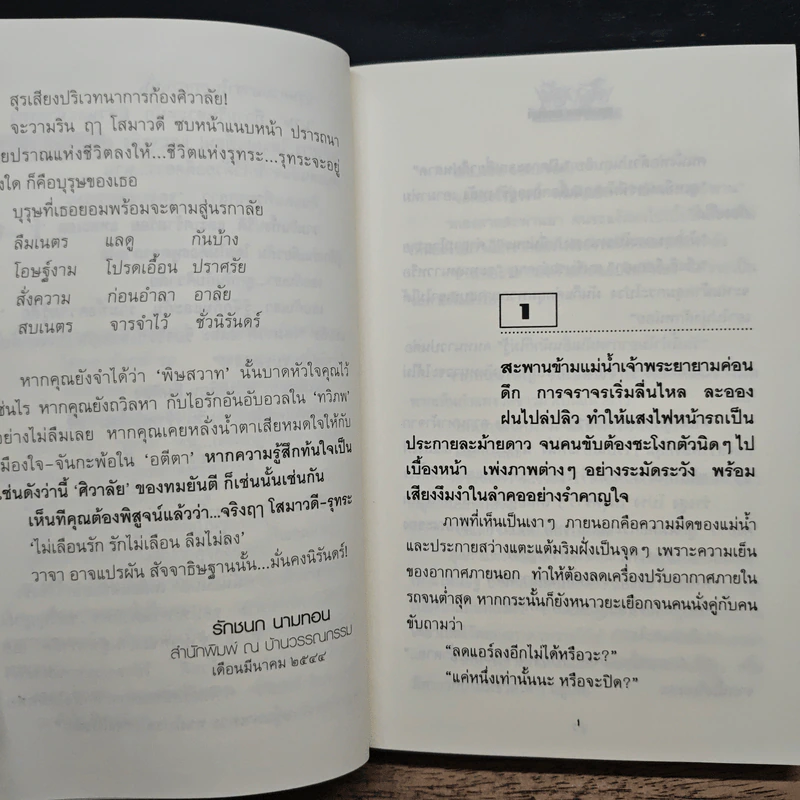 สุรเสียงปริเวทนาการก้องศิวาลัย!
จะวามริน ฤๅ โสมาวดี ซบหน้าแนบหน้า ปรารถนา
ยปราณแห่งชีวิตลงให้...ชีวิตแห่งรุทระ...รุทระจะอยู่
งใด ก็คือบุรุษของเธอ
บุรุษที่เธอยอมพร้อมจะตามสู่นรกาลัย
ลืมเนตร แลดู กันบ้าง
โอษฐ์งาม โปรดเอื้อน ปราศรัย
สั่งความ ก่อนอำลา อาลัย
สบเนตร จารจำไว้ ชั่วนิรันดร์
หากคุณยังจำได้ว่า ‘พิษสวาท’ นั้นบาดหัวใจคุณไว้
ช่นไร หากคุณยังถวิลหา กับไอรักอันอับอวลใน ‘ทวิภพ’
อย่างไม่ลืมเลย หากคุณเคยหลั่งน้ำตาเสียหมดใจให้กับ
มืองใจ-จันกะพ้อใน ‘อตีตา’ หากความรู้สึกท้นใจเป็น
เช่นดังว่านี้ ‘ศิวาลัย’ ของทมยันตี ก็เช่นนั้นเช่นกัน
เห็นทีคุณต้องพิสูจน์แล้วว่า...จริงฤๅ โสมาวดี-รุทระ
‘ไม่เลือนรัก รักไม่เลือน ลืมไม่ลง’
วาจา อาจแปรผัน สัจจาธิษฐานนั้น...มั่นคงนิรันดร์!
รักชนก นามทอน
สำนักพิมพ์ ณ บ้านวรรณกรรม
เดือนมีนาคม ๒๕๔๔
1
สะพานข้ามแม่น้ำเจ้าพระยายามค่อน
ดึก การจราจรเริ่มลื่นไหล ละออง
ฝนไปล่ปลิว ทำให้แสงไฟหน้ารถเป็น
ประกายละม้ายดาว จนคนขับต้องชะโงกตัวนิดๆ ไป
เบื้องหน้า เพ่งภาพต่างๆ อย่างระมัดระวัง พร้อม
เสียงงึมงำในลำคออย่างรำคาญใจ
ภาพที่เห็นเป็นเงาๆ ภายนอกคือความมืดของแม่น้ำ
และประกายสว่างแตะแต้มริมฝั่งเป็นจุดๆ เพราะความเย็น
ของอากาศภายนอก ทำให้ต้องลดเครื่องปรับอากาศภายใน
รถจนต่ำสุด หากกระนั้นก็ยังหนาวยะเยือกจนคนนั่งคู่กับคน
ขับถามว่า
“ลดแอร์ลงอีกไม่ได้หรือวะ?”
“แค่หนึ่งเท่านั้นนะ หรือจะปิด?”
1